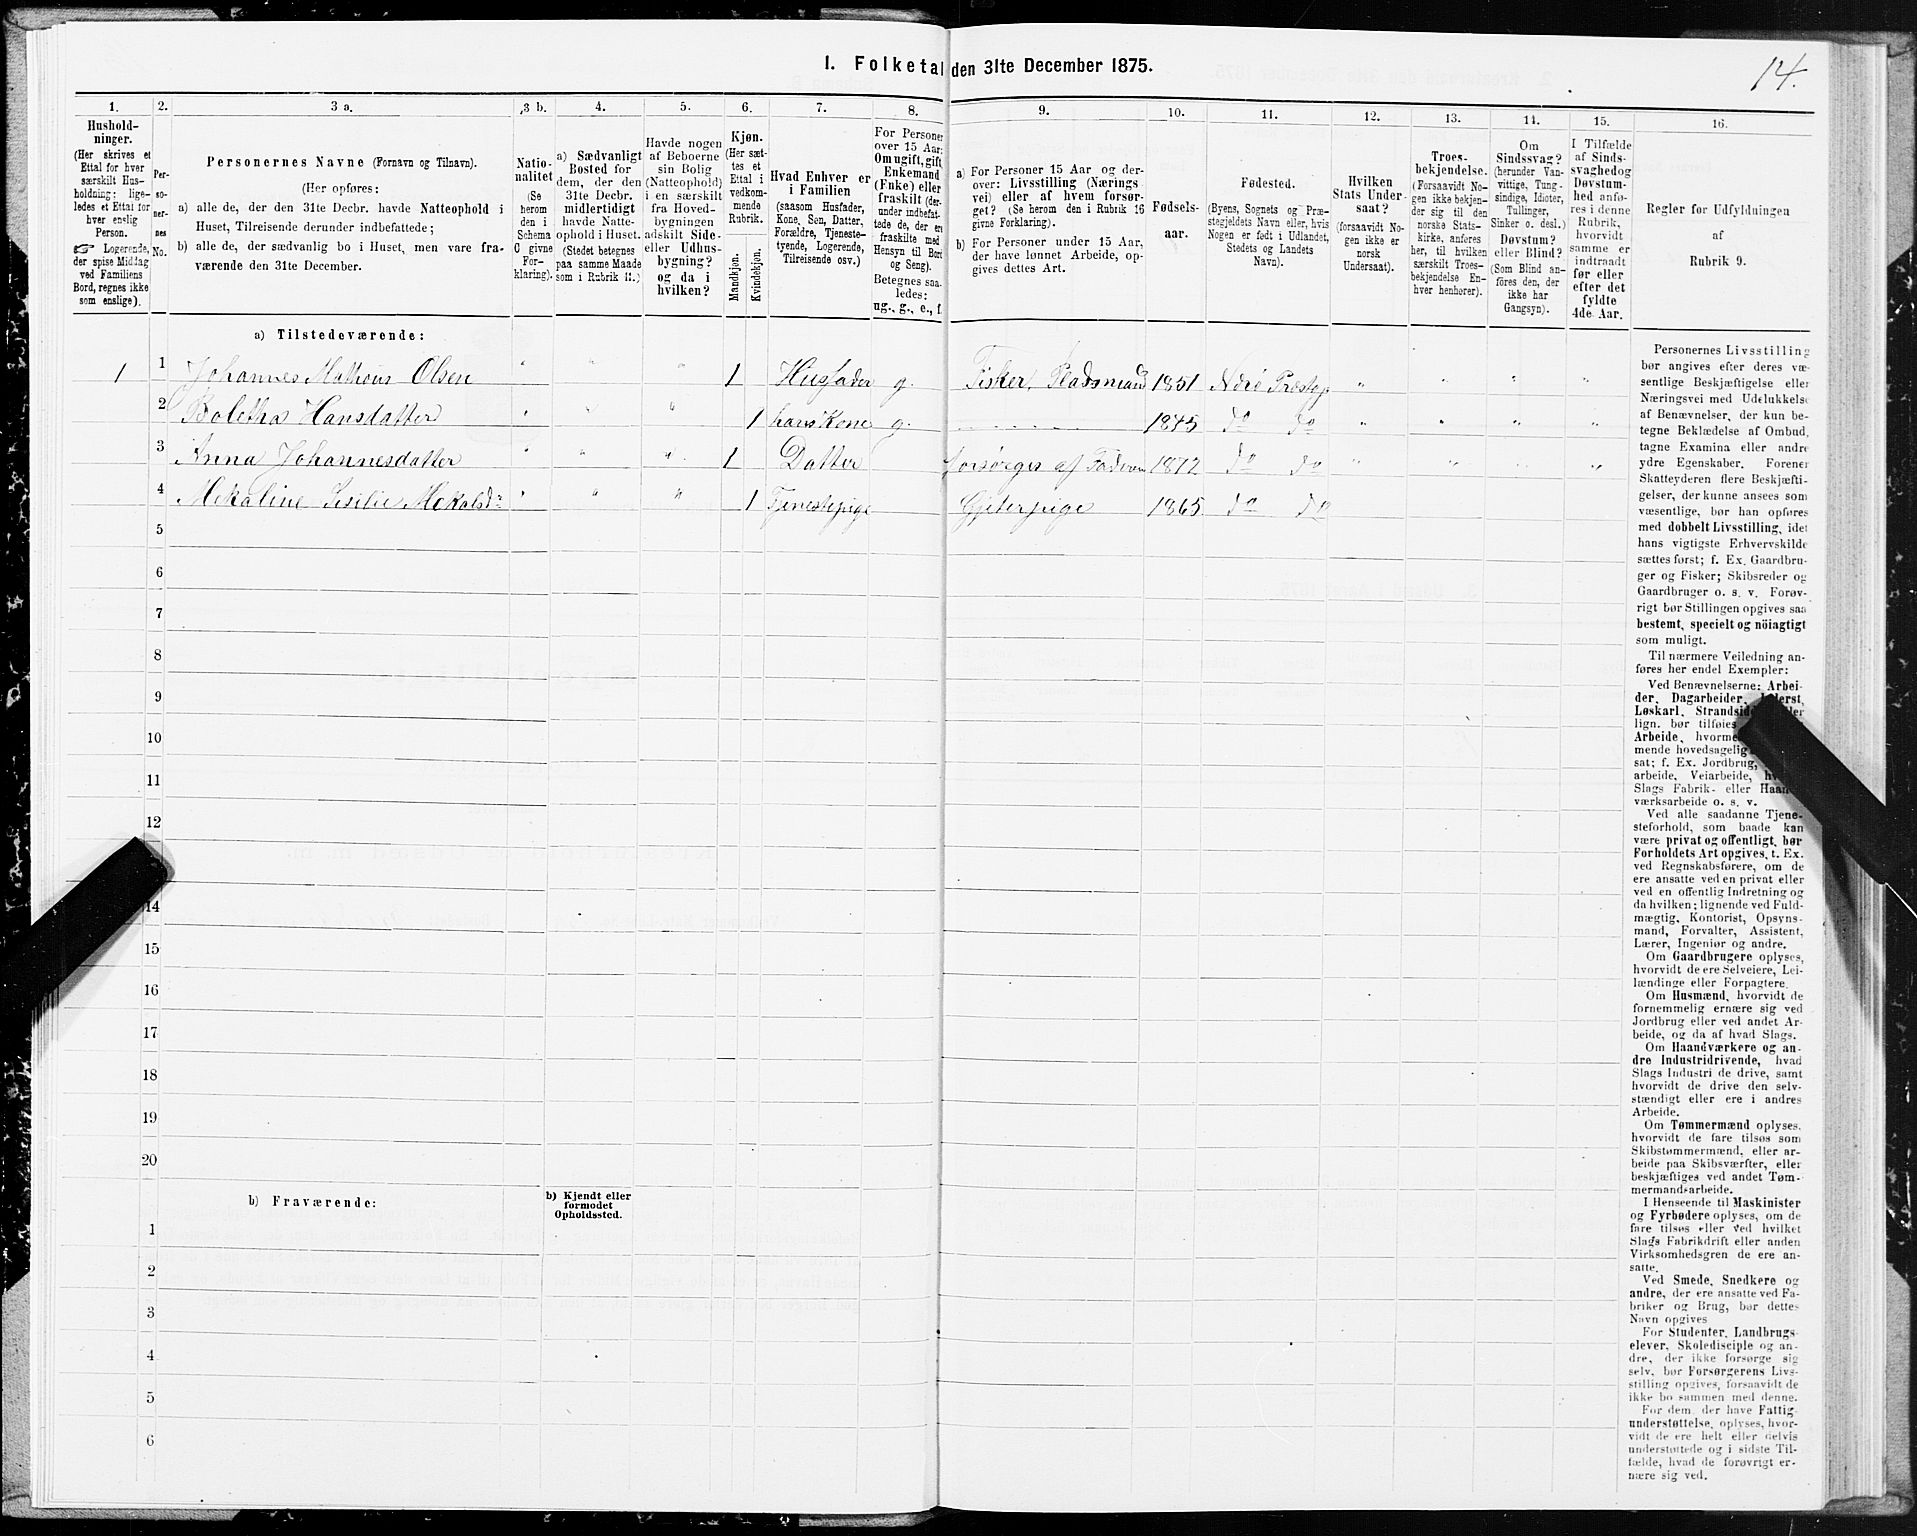 I. Folketal den 31te December 1875.
14.
1. 2. 3 a. 3 b. 4. 5. 6. 7. 8. 9. 10. 11. 12. 13. 14. 15. 16.
Hushold-
ninger.
(Her skrives et
Ettal for hver
særskilt Hus-
holdning; lige-
ledes et Ettal for
hver enslig
Person.
☞ Logerende,
der spise Middag
ved Familiens
Bord, regnes ikke
som enslige).
Per-
so-
ner-
nes
No.
Personernes Navne (Fornavn og Tilnavn).
(Her opføres:
a) alle de, der den 31te Decbr. havde Natteophold i
Huset, Tilreisende derunder indbefattede;
b) alle de, der sædvanlig bo i Huset, men vare fra-
værende den 31te December.
Natio-
nalitet
(Se
herom
den i
Schema
C givne
For-
klaring).
a) Sædvanligt
Bosted for
dem, der den
31te Decbr.
midlertidigt
havde Natte-
ophold i Huset.
(Stedet betegnes
paa samme Maade
som i Rubrik 11.)
Havde nogen
af Beboerne
sin Bolig
(Natteophold)
i en særskilt
fra Hoved-
bygningen
adskilt Side-
eller Udhus-
bygning?
og da i
hvilken?
Kjøn.
(Her sæt-
tes et
Ettal i
vedkom-
mende
Rubrik.
Mandkjøn.
Kvindekjøn.
Hvad Enhver er
i Familien
(saasom Husfader,
Kone, Søn, Datter,
Forældre, Tjeneste-
tyende, Logerende,
Tilreisende osv.)
For Personer
over 15 Aar:
Om ugift, gift,
Enkemand
(Enke) eller
fraskilt (der-
under indbefat-
tede de, der er
fraskilte med
Hensyn til Bord
og Seng).
Betegnes saa-
ledes:
ug., g., e., f.
a) For Personer 15 Aar og der-
over: Livsstilling (Nærings
vei) eller af hvem forsør-
get? (Se herom den i Rubrik 16
givne Forklaring).
b) For Personer under 15 Aar,
der have lønnet Arbeide, op-
gives dettes Art.
Fødsels-
aar.
Fødested.
(Byens, Sognets og Præ-
stegjeldets Navn eller, hvis
Nogen er født i Udlandet,
Stedets og Landets
Navn).
Hvilken
Stats Under-
saat?
(forsaavidt No-
gen ikke er
norsk
Undersaat).
Troes-
bekjendelse.
(Forsaavidt No-
gen ikke bekjen-
der sig til den
norske Stats-
kirke, anføres
her, til hvilken
særskilt Troes-
bekjendelse En-
hver henhører).
Om
Sindssvag?
(herunder Van-
vittige, Tung-
sindige, Idioter,
Tullinger,
Sinker o. desl.)
Døvstum?
eller Blind?
(Som Blind an-
føres den, der
ikke har
Gangsyn).
I Tilfælde
af Sinds-
svaghedog
Døvstum-
hed anfø-
res i denne
Rubrik,
hvorvidt
samme er
indtraadt
før eller
efter det
fyldte
4de Aar.
Regler for Udfyldningen
af
Rubrik 9.
a) Tilstedeværende:
1 1 Johannes Matheus Olsen " " " 1 Husfader g. Fisker, Pladsmand 1851 Nærø Præstegj " " " "
2 Boletha Hansdatter " " " 1 hans Kone g. 1845 do do " " " "
3 Anna Johannesdatter " " " 1 Datter forsørges af Faderen 1872 do do " " " "
4 Mekaline Sesilie Mekalsdr " " " 1 Tjenestepige Gjeterpige 1865 do do
5
6
7
8
9
10
11
12
14
15
16
17
18
19
20
b) Fraværende:
b) Kjendt eller
formodet
Opholdssted.
1
2
3
4
5
6
Personernes Livsstilling
bør angives efter deres væ-
sentlige Beskjæftigelse eller
Næringsvei med Udelukkelse
af Benævnelser, der kun be-
tegne Beklædelse af Ombud,
tagne Examina eller andre
ydre Egenskaber. Forener
Skatteyderen flere Beskjæfti-
gelser, der kunne ansees som
væsentlige, bør han opføres
med dobbelt Livsstilling, idet
hans vigtigste Erhvervskilde
sættes først; f. Ex. Gaardbru-
ger og Fisker; Skibsreder og
Gaardbruger o. s. v. Forøv-
rigt bør Stillingen opgives saa
bestemt, specielt og nöiagtigt
som muligt.
Til nærmere Veiledning an-
føres her endel Exempler:
Ved Benævnelserne: Arbei-
der, Dagarbeider,
Løskarl,
lign. bør tilføies
Arbeide,
mende hovedsagelig
sat; f. Ex. Jordbrug,
arbeide, Veiarbeide,
Slags Fabrik- eller
værksarbeide o. s. v.
Ved alle saadanne Tjene-
steforhold, som baade kan
være privat og offentligt, bør
Forholdets Art opgives, t. Ex.
ved Regnskabsførere, om de
ere ansatte ved en privat eller
ved en offentlig Indretning og
da hvilken; lignende ved Fuld-
mægtig, Kontorist, Opsyns-
mand, Forvalter, Assistent,
Lærer, Ingeniør og andre.
Om Gaardbrugere oplyses,
hvorvidt de ere Selveiere, Lei-
lændinge eller Forpagtere.
Om Husmænd, hvorvidt de
fornemmelig ernære sig ved
Jordbrug eller ved andet Ar-
beide, og da af hvad Slags.
Om Haandværkere og an-
dre Industridrivende, hvad
Slags Industri de drive, samt
hvorvidt de drive den selv-
stændigt eller ere i andres
Arbeide.
Om Tømmermænd oplyses,
hvorvidt de fare tilsøs som
Skibstømmermænd, eller ar-
beide paa Skibsværfter, eller
beskjæftiges ved andet Tøm-
mermandsarbeide.
I Henseende til Maskinister
og Fyrbødere oplyses, om de
fare tilsøs eller ved hvilket
Slags Fabrikdrift eller anden
Virksomhedsgren de ere an-
satte.
Ved Smede, Snedkere og
andre, der ere ansatte ved Fa-
briker og Brug, bør dettes
Navn opgives
For Studenter, Landbrugs-
elever, Skoledisciple og an-
dre, der ikke forsørge sig
selv, bør Forsørgerens Livs-
stilling opgives, forsaavidt de
ikke bo sammen med denne.
For dem, der have Fattig-
understøttelse, oplyses, hvor-
vidt de ere helt eller delvis
understøttede og i sidste Til-
fælde, hvad de forøvrigt er-
nære sig ved.